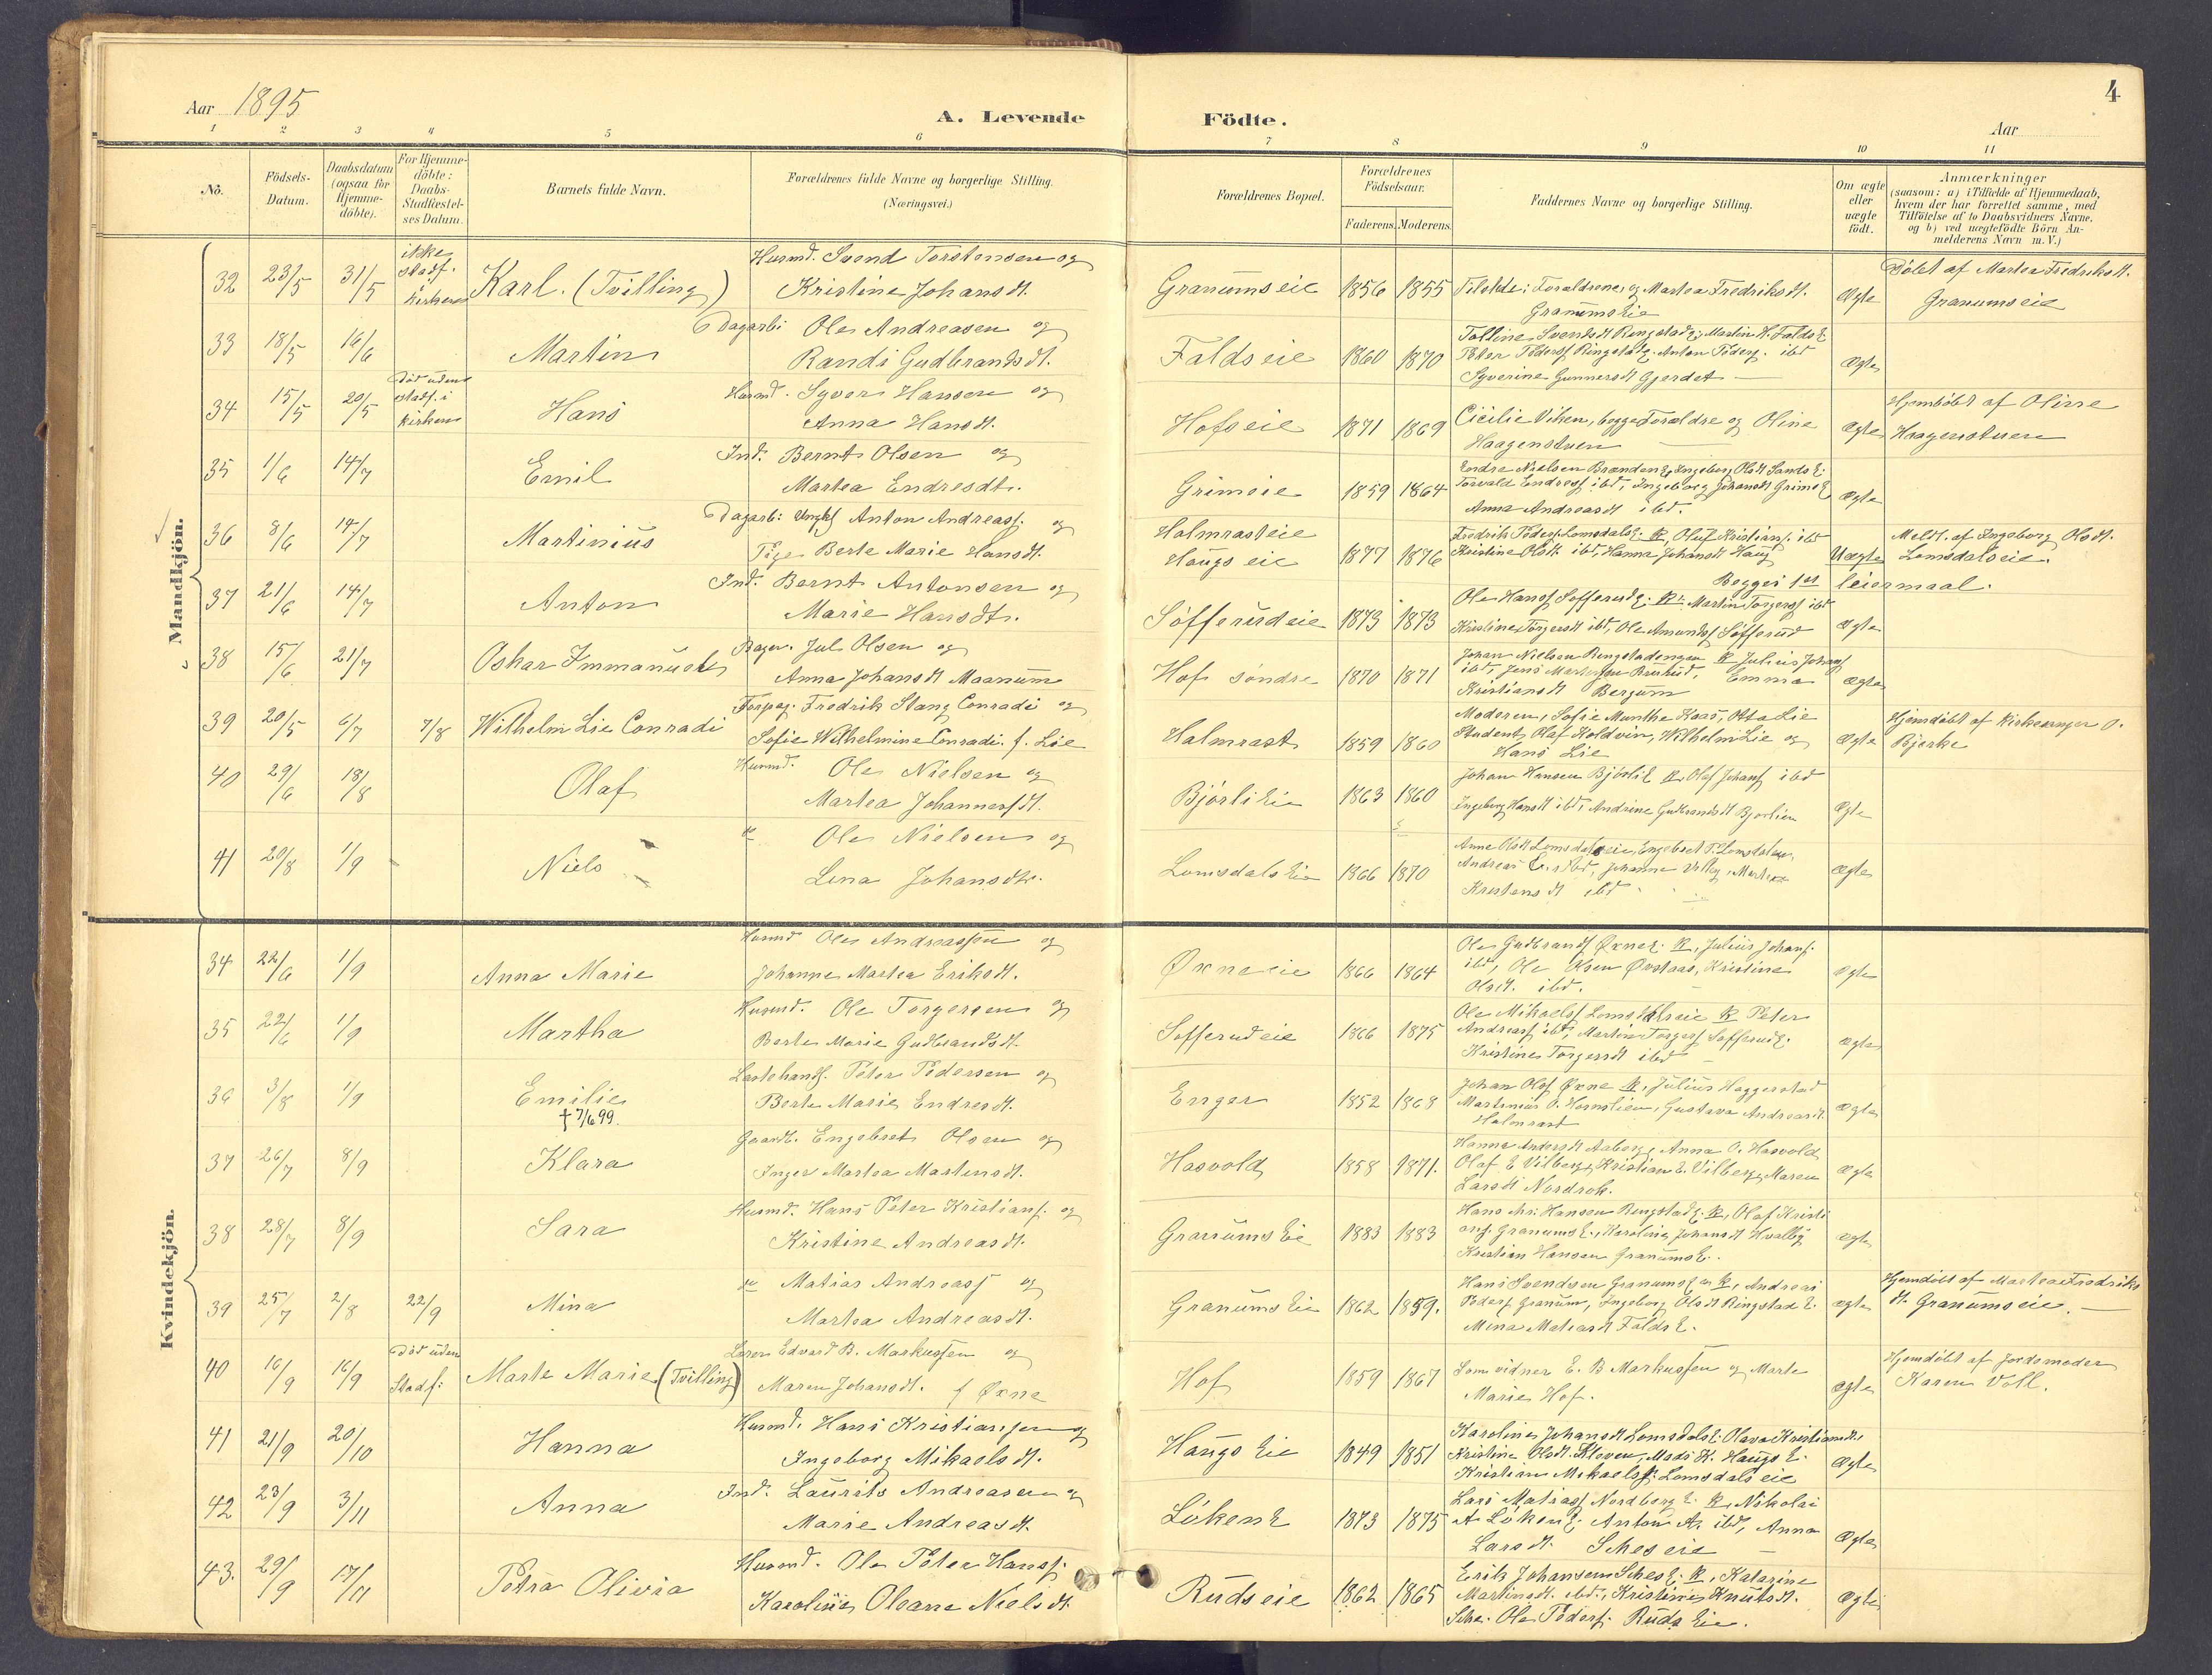 Aar 1895
A. Levende Födte.
Aar
4
1 2 3 4 5 6 7 8 9 10 11
No.
Födsels-Datum.
Daabsdatum (ogsaa for Hjemme-döbte).
For Hjemme-döbte: Daabs-Stadfæstel-ses Datum.
Barnets fulde Navn.
Forældrenes fulde Navne og borgerlige Stilling. (Næringsvei.)
Forældrenes Bopæl.
Forældrenes Födselsaar.
Faderens. Moderens.
Faddernes Navne og borgerlige Stilling.
Om ægte eller uægte födt.
Anmærkninger
(saasom: a) i Tilfælde af Hjemmedaab, hvem der har forrettet samme, med Tilföielse af to Daabsvidners Navne, og b) ved uægtefödte Börn An-melderens Navn m. V.)
Mandkjön.
32 23/5 31/5 ikke stadf. i kirken Karl. (Tvilling) Husmd. Svend Torstensen og Kristine Johansdt. Granumseie 1856 1855 Tilstede: Forældrene og Martea Fredriksdt. Granumseie Ægte Döbt af Martea Fredriksdt. Granumseie
33 18/5 16/6 Martin Dagarb: Ole Andreasen og Randi Gudbrandsdt. Faldseie 1860 1870 Tolline Svendsdt Ringstade, Martin H. Faldse Peter Peders Ringstade. Anton Peders. ibd Syverine Gunnersdt Gjerdet Ægte
34 15/5 20/5 död uden stadf. i kirken Hans Husmd. Syver Hansen og Anna Hansdt. Hofseie 1871 1869 Cicilie Viken, begge Forældre og Oline Haagenstuen Ægte Hjemdöbt af Oline Haagenstuen
35 1/6 14/7 Emil Ind. Bernt Olsen og Martea Endresdtr. Grimseie 1859 1864 Endre Nielsen Brænden, Ingeborg Olsdt Sandse. Torvald Endress ibd, Ingeborg Johansdt Grimse Anna Andreasdt ibd. Ægte
36 8/6 14/7 Martinius Dagarb: Ungk. Anton Andreass. og Pige Berte Marie Hansdt. Holmrasteie Haugseie 1877 1876 Fredrik Peders Lomsdalse. K, Oluf Kristians. ibd Kristine Olsdt ibd, Hanna Johansdt Haug Uægte Meldt. af Ingeborg Olsdt. Lomsdalseie.
Begges 1st leiermaal.
37 21/6 14/7 Anton Ind. Bernt Antonsen og Marie Hansdtr. Söfferudeie 1873 1873 Ole Hanss Sofferude. K. Martin Torgerss ibd Kristine Torgersdt ibd, Ole Amunds Söfferud Ægte
38 15/6 21/7 Oskar Immanuel Bager. Jul Olsen og Anna Johansdt Maanum Hof söndre 1870 1871 Johan Nielsen Ringstadengen K Julius Johans ibd, Emma Kristiansdt Bergum Ægte
39 20/5 6/7 7/8 Wilhelm Lie Conradi Forpag. Fredrik Stang Conradi og Sofie Wilhelmine Conradi. f. Lie Holmrast 1859 1860 Moderen, Sofie Munthe Kaas, Otto Lie Student, Olaf Holdvin, Wilhelm Lie og Hans Lie Ægte Hjemdöbt af Kirkesanger O. Bjerke
40 29/6 18/8 Olaf Husmd. Ole Nielsen og Martea Johannesdt. Björlieie 1863 1860 Johan Hansen Björlie K. Olaf Johans ibd Ingeborg Hansdt ibd, Andrine Gudbrandsdt Bjorlien Ægte
41 20/8 1/9 Niels do Ole Nielsen og Lena Johansdtr. Lomsdalseie 1866 1870 Anne Olsdt Lomsdalseie, Engebret P. Lomsdalen, Andreas ibd, Johanne Kristensdt ibd Ægte
Kvindekjön.
34 22/6 1/9 Anna Marie Husmd Ole Andreassen og Johanne Martea Eriksdt. Öxneeie 1866 1864 Ole Gudbrands Öxnee. K, Julius Johans. ibd, Ole Olsen Övstaas, Kristine Olsdt. ibd. Ægte
35 22/6 1/9 Martha Husmd. Ole Torgersen og Berte Marie Gudbrandsdt. Sofferudeie 1866 1875 Ole Mikaels Lomsdalseie K Peter Andreass ibd, Martin Torgers Sofferude. Kristine Torgersdt ibd Ægte
36 3/8 1/9 Emilie † 7/6 99. Lastehandl. Peter Pedersen og Berte Marie Endresdt. Enger 1852 1868 Johan Ols Öxne K, Julius Haggerstad Martinius O. Hornslien, Gustava Andreasdt. Holmrast Ægte
37 26/7 8/9 Klara Gaardb. Engebret Olsen og Inger Martea Martensdt. Hasvold 1858 1871. Hanna Andersdt Aaberg, Anna O. Hasvold Olaf E Vilberg, Kristian E. Vilberg, Maren Larsdt Nordrok. Ægte
38 28/7 8/9 Sara Husmd. Hans Peter Kristians. og Kristine Andreasdt. Granumseie 1883 1883 Hans Chr: Hansen Ringstade. K, Olaf Kristians. Granumse., Karoline Johansdt Hvalby Kristian Hansen Granumse. Ægte
39 25/7 2/8 22/9 Mina do Matias Andreass og Martea Andreasdt. Granumseie 1862 1859. Hans Svendsen Granumse K, Andreas Peders Granum, Ingeborg Olsdt Ringstad E. Mina Matiasdt Faldse. Ægte Hjemdöbt af Martea Fredriksdt. Granumseie.
40 16/9 16/9 död uden Stadf: Marte Marie (Tvilling) Edvard B. Markussen og Maren Johansdt. f Öxne Hof 1859 1867 Som vidner E. B Markussen og Marte Marie Hof. Ægte Hjemdöbt af Jordemoder Karen Voll.
41 21/9 20/10 Hanna Husmd. Hans Kristiansen og Ingeborg Mikaelsdt. Haugseie 1849 1851 Karoline Johansdt Lomsdalse. Olava Kristiansdt. Kristine Olsdt. Kleven, Mads K. Haugse. Kristian Mikaels. Lomsdalseie Ægte
42 23/9 3/11 Anna Ind. Laurits Andreasen og Marie Andreasdt. Lökene 1873 1875 Lars Matiass Nordberge. K, Nikolai A Lökene. Anton A. ibd, Anna Larsdt. Scheseie Ægte
43. 29/9 17/11 Petra Olivia Husmd. Ole Peter Hanss. Karoline Oleane Nielsdt. Rudseie 1862 1865 Erik Johansen Schese. K, Katarine Martinsdt. ibd., Kristine Knutsdt. Sche. Ole Peders. Rudseie. Ægte